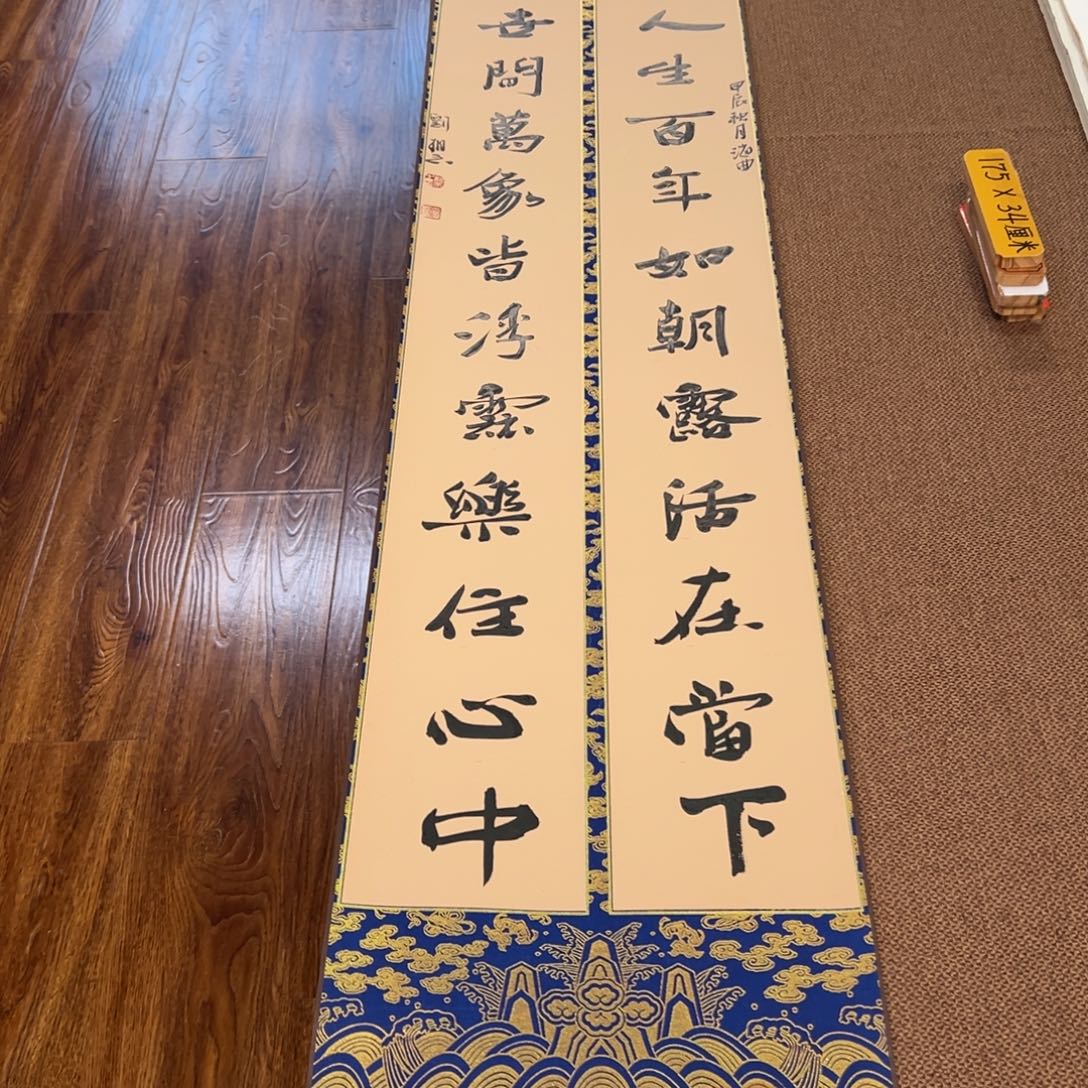 人生百年如朝露活在當下
甲辰秋月海曲
世間萬象皆浮雲樂住心中
劉
175 X 34厘米